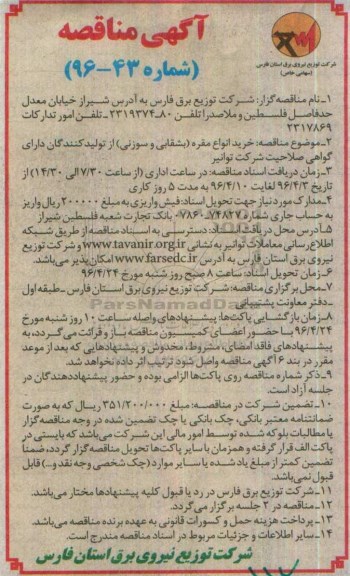 آگهی مناقصه
(شماره ۴۳-۹۶)
شرکت توزیع نیروی برق استان فارس
(سهامی خاص)
۱-نام مناقصه‌گزار: شرکت توزیع برق فارس به آدرس شیراز خیابان معدل
حدفاصل فلسطین و ملاصدرا تلفن ۸۰-۲۳۱۹۳۷۴ -تلفن امور تدارکات
۲۳۱۷۸۶۹
۲-موضوع مناقصه: خرید انواع مقره (بشقابی و سوزنی) از تولیدکنندگان دارای
گواهی صلاحیت شرکت توانیر
۳-زمان دریافت اسناد مناقصه: در ساعت اداری (از ساعت ۷/۳۰ الی ۱۴/۳۰) از
تاریخ ۹۶/۴/۳ لغایت ۹۶/۴/۱۰ به مدت ۵ روز کاری
۴-مدارک مورد نیاز جهت تحویل اسناد: فیش واریزی به مبلغ ۲۰۰۰۰۰ ریال واریز
به حساب جاری شماره ۰۷۸۶۰-۷۴۸۲۷ بانک تجارت شعبه فلسطین شیراز
۵-آدرس محل دریافت اسناد: دسترسی به اسناد مناقصه از طریق شبکه
اطلاع‌رسانی معاملات توانیر به نشانی www.tavanir.org.ir و شرکت توزیع
نیروی برق استان فارس به آدرس www.farsedc.ir امکان‌پذیر می‌باشد.
۶-زمان تحویل اسناد: ساعت ۸ صبح روز شنبه مورخ ۹۶/۴/۲۴
۷-محل برگزاری مناقصه: شرکت توزیع نیروی برق استان فارس -طبقه اول
-دفتر معاونت پشتیبانی
۸-زمان بازگشایی پاکت‌ها: پیشنهادهای واصله ساعت ۱۰ روز شنبه مورخ
۹۶/۴/۲۴ با حضور اعضای کمیسیون مناقصه باز و قرائت می‌گردد، به
پیشنهادهای فاقد امضای، مشروط، مخدوش و پیشنهادهایی که بعد از موعد
مقرر در بند ۶ آگهی مناقصه واصل شود ترتیب اثر داده نخواهد شد.
۹-ذکر شماره مناقصه روی پاکت‌ها الزامی بوده و حضور پیشنهاددهندگان در
جلسه آزاد است.
۱۰-تضمین شرکت در مناقصه: مبلغ ۳۵۱/۲۰۰/۰۰۰ ریال که به صورت
ضمانتنامه معتبر بانکی، چک بانکی یا چک تضمین شده در وجه مناقصه‌گزار
یا مطالبات بلوکه شده توسط امور مالی این شرکت می‌باشد که بایستی در
پاکت الف قرار گرفته و همزمان با سایر پاکت‌ها تحویل مناقصه‌گزار گردد، ضمناً
تضمین کمتر از مبلغ یاد شده یا سایر موارد (چک شخصی وجه نقد و...) قابل
قبول نمی‌باشد.
۱۱-شرکت توزیع برق فارس در رد یا قبول کلیه پیشنهادها مختار می‌باشد.
۱۲-مناقصه در ۲ جلسه برگزار می‌گردد.
۱۳-پرداخت هزینه حمل و کسورات قانونی به عهده برنده مناقصه می‌باشد.
۱۴-سایر اطلاعات و جزئیات مربوط در اسناد مناقصه مندرج است.
شرکت توزیع نیروی برق استان فارس